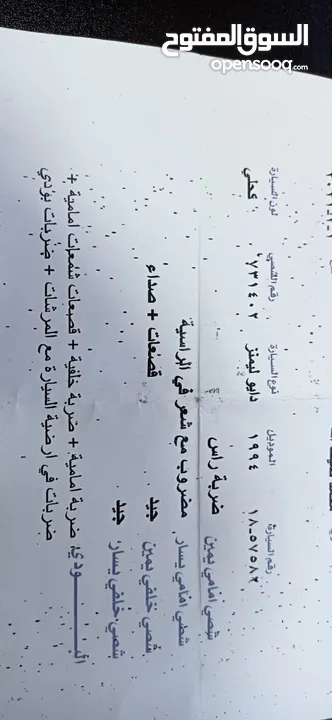 السوق المفتوح
opensooq.com
رقم السيارة الموديل نوع السيارة رقم الشصي لون السيارة
١٨-٥٧٥٨٢ ١٩٩٤ دايو ليمنز ٧٣١٤٠٢ كحلي
شصي امامي يمين ضربة راس
شصي امامي يسار مضروب مع شعر في الراسية
شصي خلفي يمين جيد قصعات + صداء
شصي خلفي يسار جيد
البـــودي: ضربة امامية + ضربة خلفية + قصعات شمعات امامية +
ضربات في ارضية السيارة مع المرشات + ضربات بودي